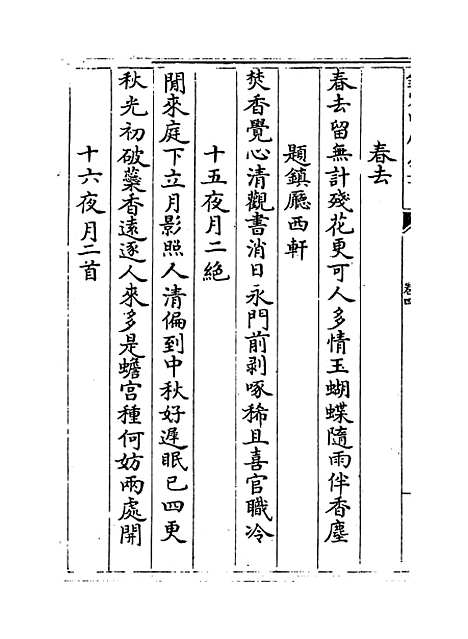 卷四
春去
春去留無計殘花更可人多情玉蝴蝶隨雨伴香塵
題鎮廳西軒
焚香覺心清觀書消日永門前剥啄稀且喜官職冷
十五夜月二絶
閒來庭下立月影照人清偏到中秋好遲眠已四更
秋光初破蘂香遠逐人來多是蟾宫種何妨兩處開
十六夜月二首